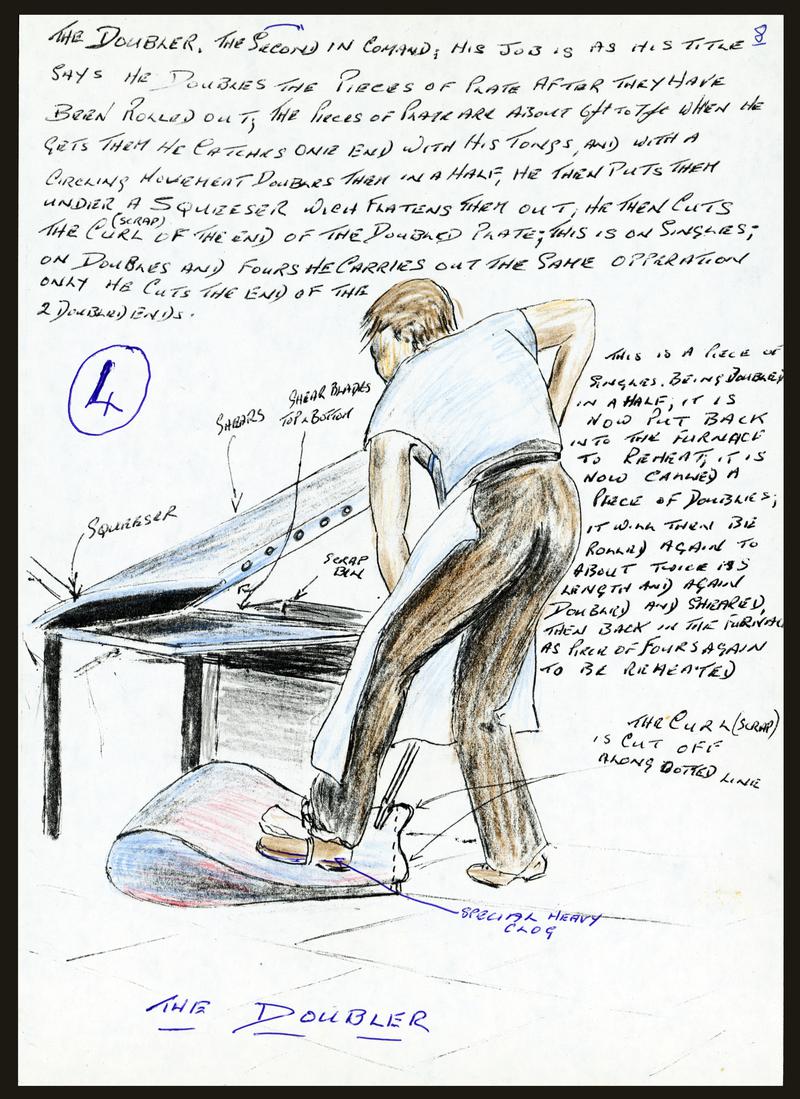 8
THE DOUBLER. THE SECOND IN COMAND; HIS JOB IS AS HIS TITLE
SAYS HE DOUBLES THE PIECES OF PLATE AFTER THEY HAVE
BEEN ROLLED OUT; THE PIECES OF PLATE ARE ABOUT 6ft TO 7ft WHEN HE
GETS THEM HE CATCHES ONE END WITH HIS TONGS, AND WITH A
CIRCLING MOVEMENT DOUBLES THEM IN A HALF, HE THEN PUTS THEM
UNDER A SQUEESER WICH FLATENS THEM OUT, HE THEN CUTS
THE CURL (SCRAP) OF THE END OF THE DOUBLED PLATE; THIS IS ON SINGLES;
ON DOUBLES AND FOURS HE CARRIES OUT THE SAME OPPERATION
ONLY HE CUTS THE END OF THE
2 DOUBLED ENDS.
4
SHEARS
SHEAR BLADES
TOP & BOTTOM
SQUEESER
SCRAP
BIN
THIS IS A PIECE OF
SINGLES. BEING DOUBLED
IN A HALF; IT IS
NOW PUT BACK
INTO THE FURNACE
TO REHEAT, IT IS
NOW CALLED A
PIECE OF DOUBLES;
IT WILL THEN BE
ROLLED AGAIN TO
ABOUT TWICE ITS
LENGTH AND AGAIN
DOUBLED AND SHEARED,
THEN BACK IN THE FURNAC
AS PIECE OF FOURS AGAIN
TO BE REHEATED
THE CURL (SCRAP)
IS CUT OFF
ALONG DOTTED LINE
SPECIAL HEAVY
CLOG
THE DOUBLER